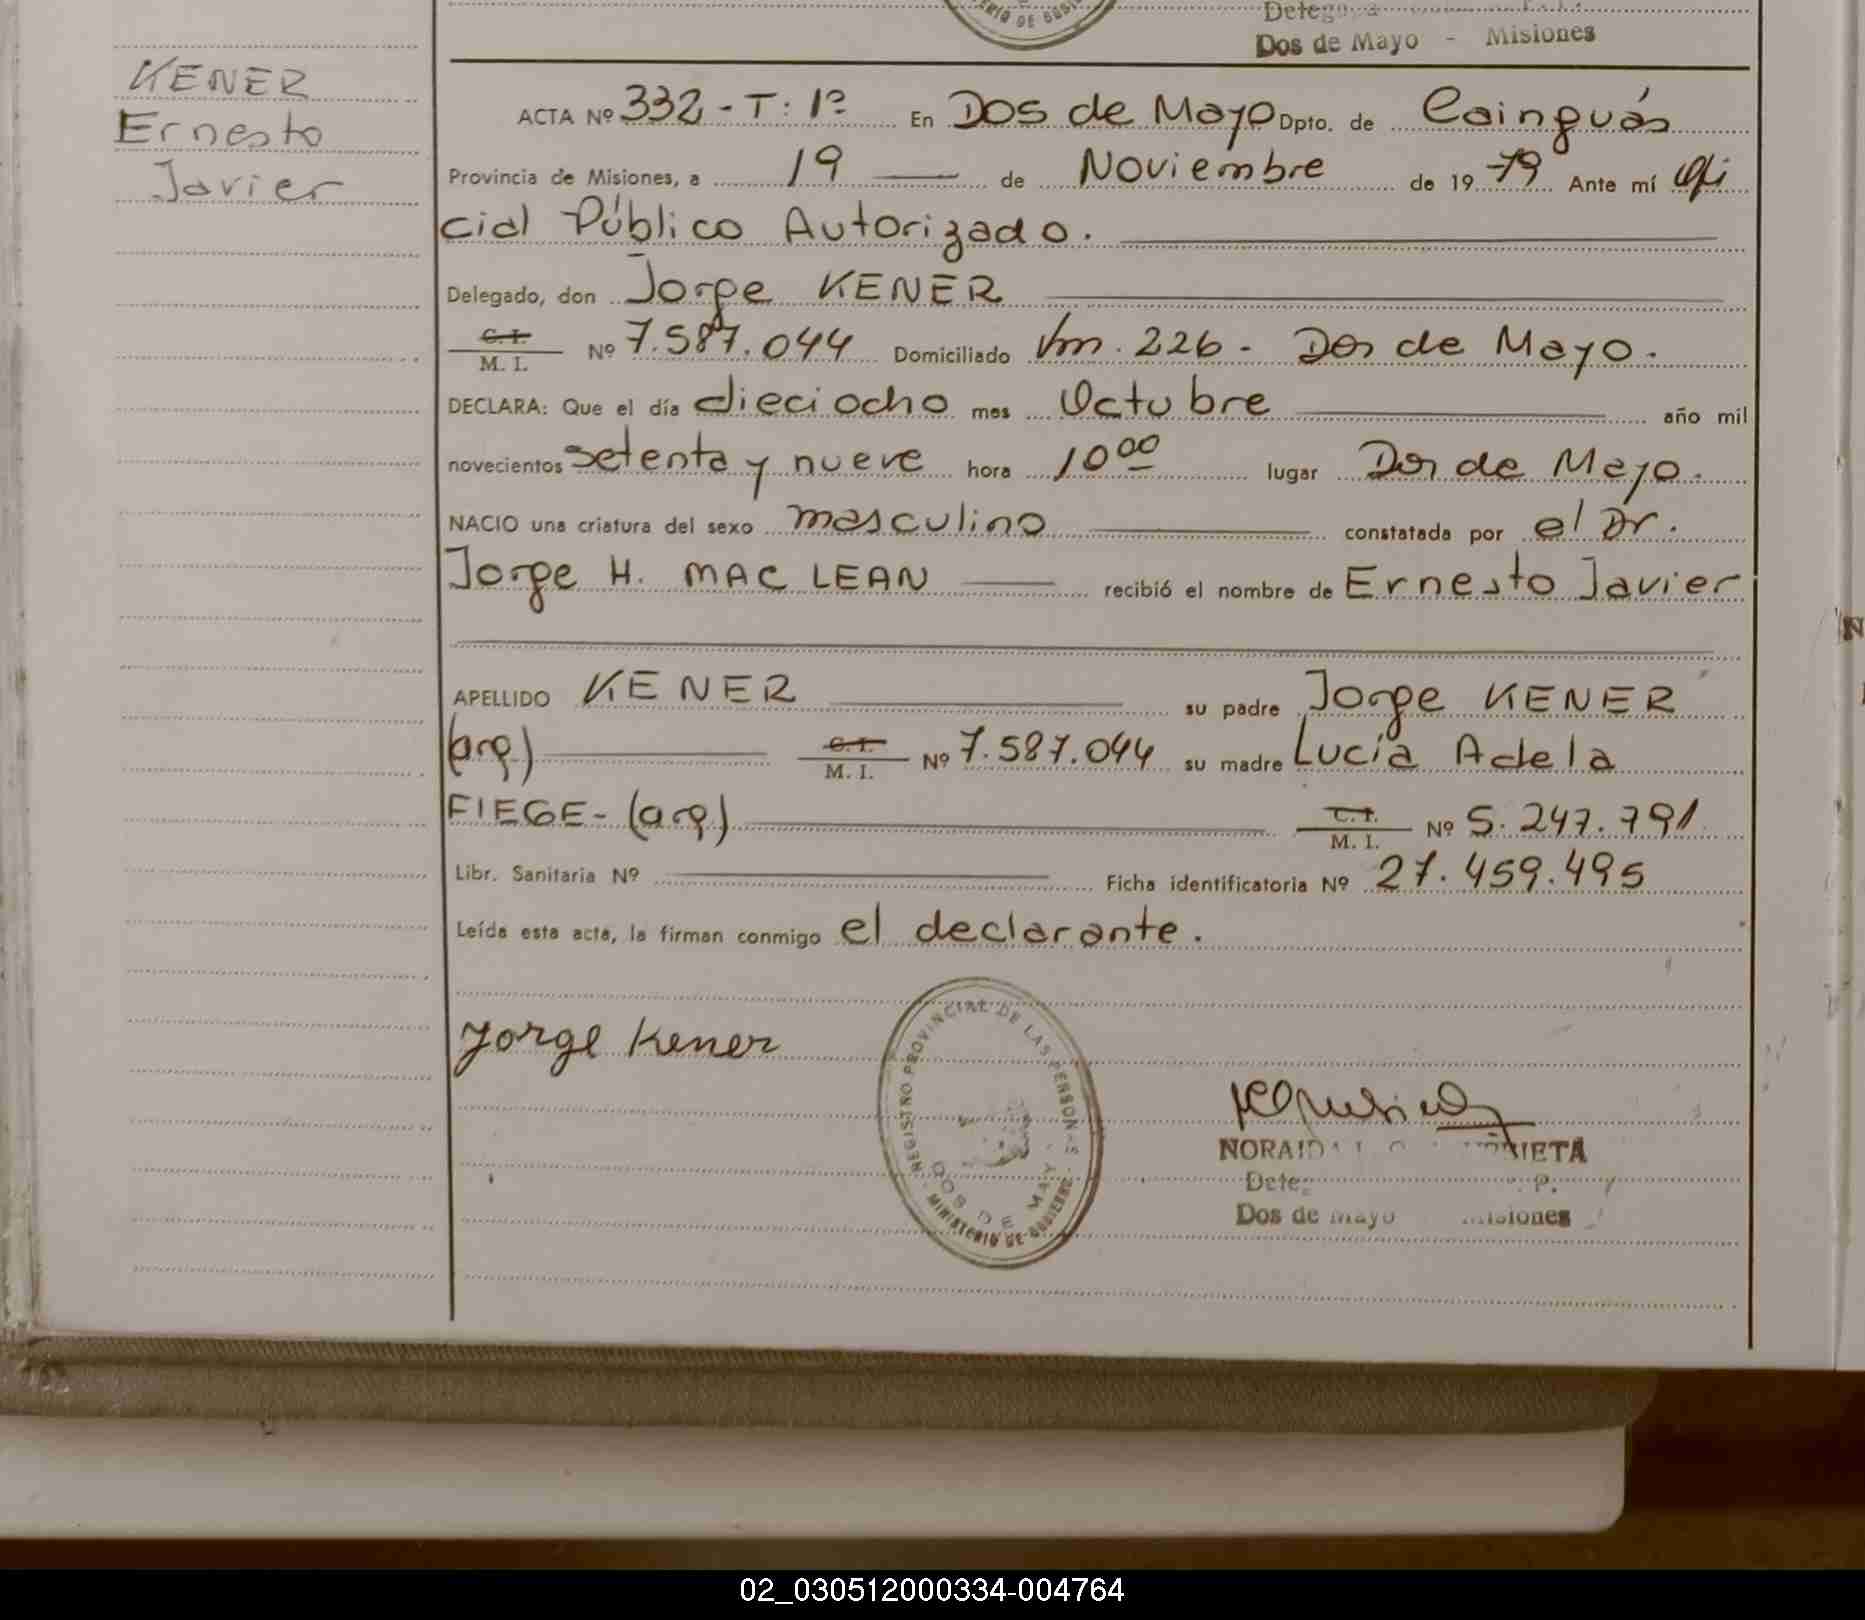 Delega
Dos de Mayo - Misiones
KENER
Ernesto
Javier
ACTA Nº 332 - T: 1º En Dos de Mayo Dpto. de Cainguás
Provincia de Misiones, a 19 de Noviembre de 1979 Ante mí Ofi
cial Público Autorizado.
Delegado, don Jorge KENER
C. I. M. I. Nº 7.587.044 Domiciliado Km. 226 - Dos de Mayo.
DECLARA: Que el día dieciocho mes Octubre año mil
novecientos setenta y nueve hora 10 00 lugar Dos de Mayo.
NACIO una criatura del sexo masculino constatada por el Dr.
Jorge H. MAC LEAN recibió el nombre de Ernesto Javier
APELLIDO KENER su padre Jorge KENER
(arg) C. I. M. I. Nº 7.587.044 su madre Lucía Adela
FIEGE - (arg) C. I. M. I. Nº 5.247.791
Libr. Sanitaria Nº Ficha identificatoria Nº 27.459.495
Leída esta acta, la firman conmigo el declarante.
Jorge Kener
REGISTRO PROVINCIAL DE LAS PERSONAS
DOS DE MAYO
MINISTERIO DE GOBIERNO
NORAIDA
Dele P.
Dos de Mayo Misiones
02_030512000334-004764